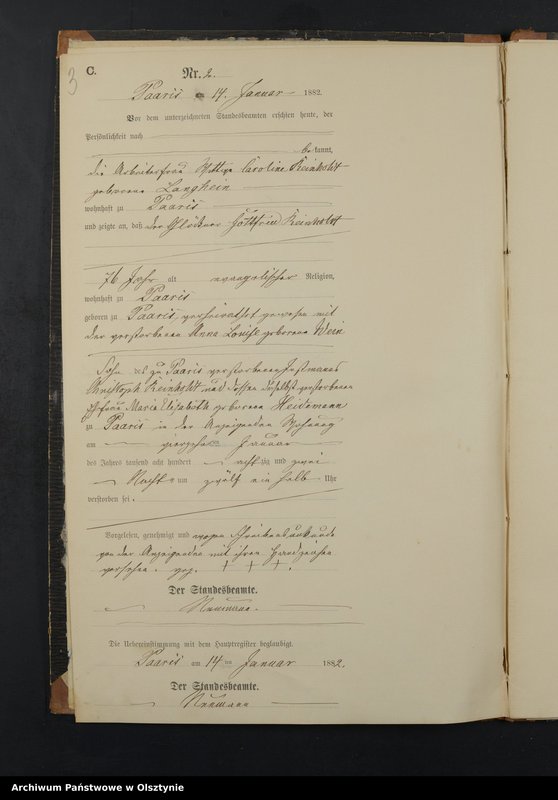 3
C.
Nr. 2.
Paaris am 14. Januar 1882.
Vor dem unterzeichneten Standesbeamten erschien heute, der
Persönlichkeit nach
bekannt,
die Arbeiterfrau Wittwe Caroline Reinholdt
geborene Langhein
wohnhaft zu Paaris
und zeigte an, daß der Glöckner Gottfried Reinholdt
76 Jahr alt evangelischer Religion,
wohnhaft zu Paaris
geboren zu Paaris, verheirathet gewesen mit
der verstorbenen Anna Louise geborene Wein
Sohn des zu Paaris verstorbenen Instmanns
Christoph Reinholdt und dessen daselbst verstorbenen
Ehefrau Maria Elisabeth geborene Heidemann
zu Paaris in der Anzeigenden Wohnung
am vierzehnten Januar
des Jahres tausend acht hundert achtzig und zwei
Nachts um zwölf ein halb Uhr
verstorben sei.
Vorgelesen, genehmigt und wegen Schreibensunkunde
von der Anzeigenden mit ihrem Handzeichen
versehen. gez. + + +.
Der Standesbeamte.
Neumann.
Die Uebereinstimmung mit dem Hauptregister beglaubigt.
Paaris am 14 ten Januar 1882.
Der Standesbeamte.
Neumann
Archiwum Państwowe w Olsztynie